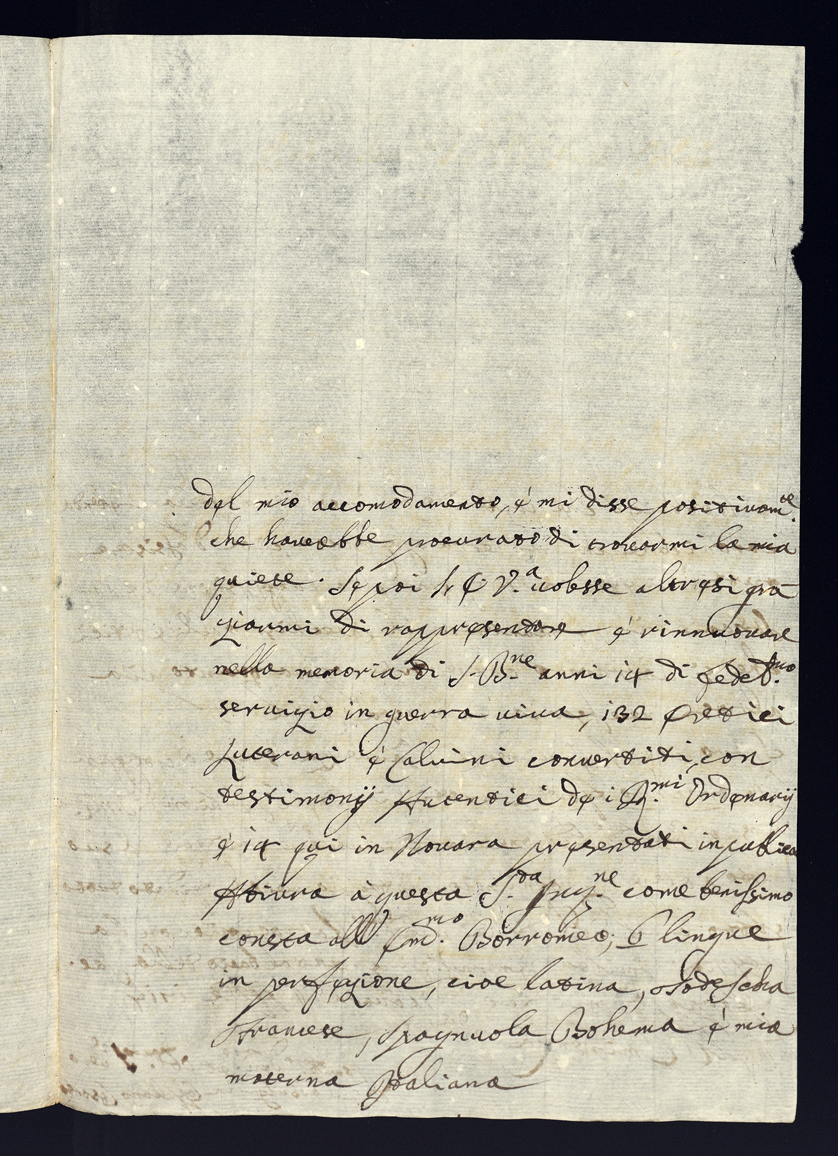 del mio accomodamento, e' mi disse positivam.te
che haverebbe procurato di trovarmi la mia
quiete. Se poi V.a volesse altresi gra
ziarmi di rappresendare e' rinnuovare
nella memoria di S. B.ne anni 14 di fedel.mo
servizio in guerra viva, 132 Eretici
Luterani e' Calvini convertiti, con
testimonij Autentici de i R.mi Ordenarij
e' 14 qui in Novara presentati in publica
Abiura à questa S.ta Inq.ne come benissimo
consta all' Em.mo Borromeo; 6 lingue
in perfezione, cioe latina, Todescha
Francese, Spagnuola Bohema e' mia
materna Italiana